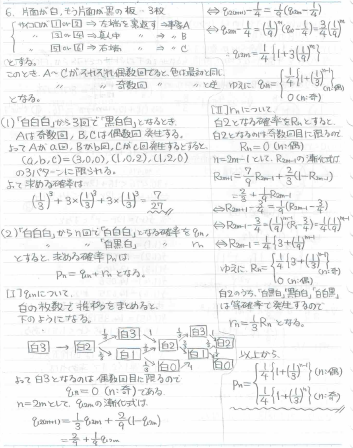 6. 片面が白, もう片面が黒の板…3枚
サイコロが 1 or 2 ⇒ 左端を裏返す ⇒ 事象A
〃 3 or 4 ⇒ 真ん中 〃 ⇒ 〃 B
〃 5 or 6 ⇒ 右端 〃 ⇒ 〃 C
とする。
このとき、A〜Cがそれぞれ偶数回でると、色は最初と同じ
〃 奇数回 〃 と逆
となる。
(1)「白白白」から3回で「黒白白」となるとき
Aは奇数回、B, Cは偶数回発生する。
よって Aがa回, Bがb回, Cがc回発生するとすると、
(a,b,c)=(3,0,0), (1,0,2), (1,2,0)
の3パターンに限られる。
よって求める確率は
(1/3)^3 + 3×(1/3)^3 + 3×(1/3)^3 = 7/27
(2)「白白白」からn回で「白白白」となる確率を qn,
〃 「白黒白」 〃 rn
とすると、求める確率 Pn は
Pn = qn + rn となる。
[I] qnについて、
白の枚数で推移をまとめると、
下のようになる。
白3 → 白2 1/3 白3 1 白2 1/3 白3
2/3 白1 2/3 白2 白1
1/3 白0 1 白0
よって白3となるのは偶数回目に限るので
qn = 0 (n:奇) である
n=2mとして、q2mの漸化式は
q2(m+1) = 1/3 q2m + 2/9 (1-q2m)
= 2/9 + 1/9 q2m
⇔ q2(m+1) - 1/4 = 1/9 (q2m - 1/4)
⇔ q2m - 1/4 = (1/9)^m (q0 - 1/4) = 3/4 (1/9)^m
∴ q2m = 1/4 {1+3(1/9)^m}
ゆえに qn = { 1/4 {1+(1/3)^(n-1)} (n:偶)
0 (n:奇)
[II] rnについて、
白2となる確率をRnとすると、
白2となるのは奇数回目に限るので
Rn = 0 (n:偶)
n=2m-1として、R2m-1の漸化式は
R2m+1 = 7/9 R2m-1 + 2/3 (1-R2m-1)
= 2/3 + 1/9 R2m-1
⇔ R2m+1 - 3/4 = 1/9 (R2m-1 - 3/4)
⇔ R2m-1 - 3/4 = (1/9)^(m-1) (R1 - 3/4) = 1/4 (1/9)^(m-1)
⇔ R2m-1 = 1/4 {3+(1/9)^(m-1)}
ゆえに Rn = { 1/4 {3+(1/3)^(n-1)} (n:奇)
0 (n:偶)
白2のうち、「白白黒」「黒白白」「白黒白」
は等確率で発生するので
rn = 1/3 Rn となる。
以上から、
Pn = { 1/4 {1+(1/3)^(n-1)} (n:偶)
1/4 {1+(1/3)^n} (n:奇)